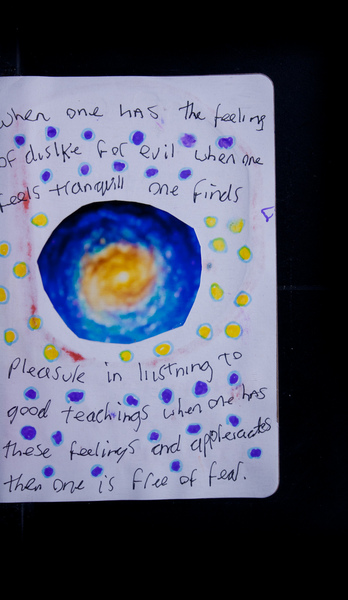 when one has the feeling
of dislike for evil when one
feels tranquill one finds
Pleasure in listning to
good teachings when one has
these feelings and appreciates
then one is free of fear.